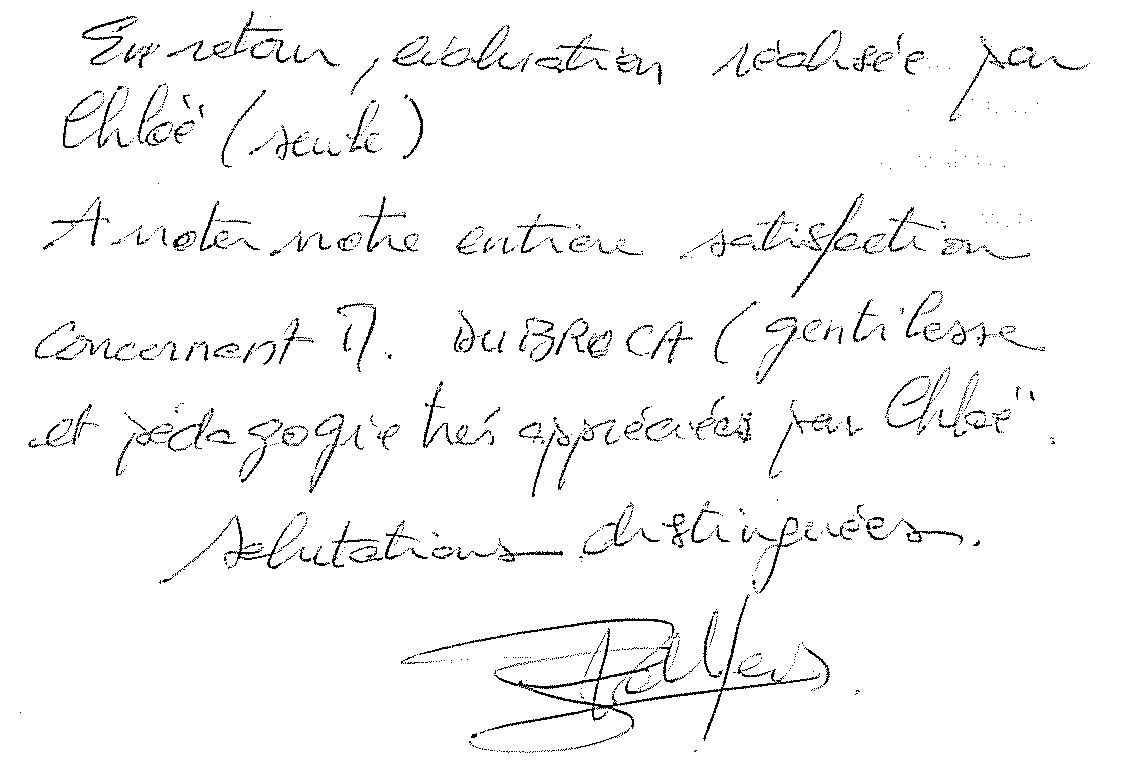 En retour, évaluation réalisée par
Chloë (seule)
A noter notre entière satisfaction
concernant M. DUBROCA (gentilesse
et pédagogie très appréciées par Chloë.
Salutations distinguées.